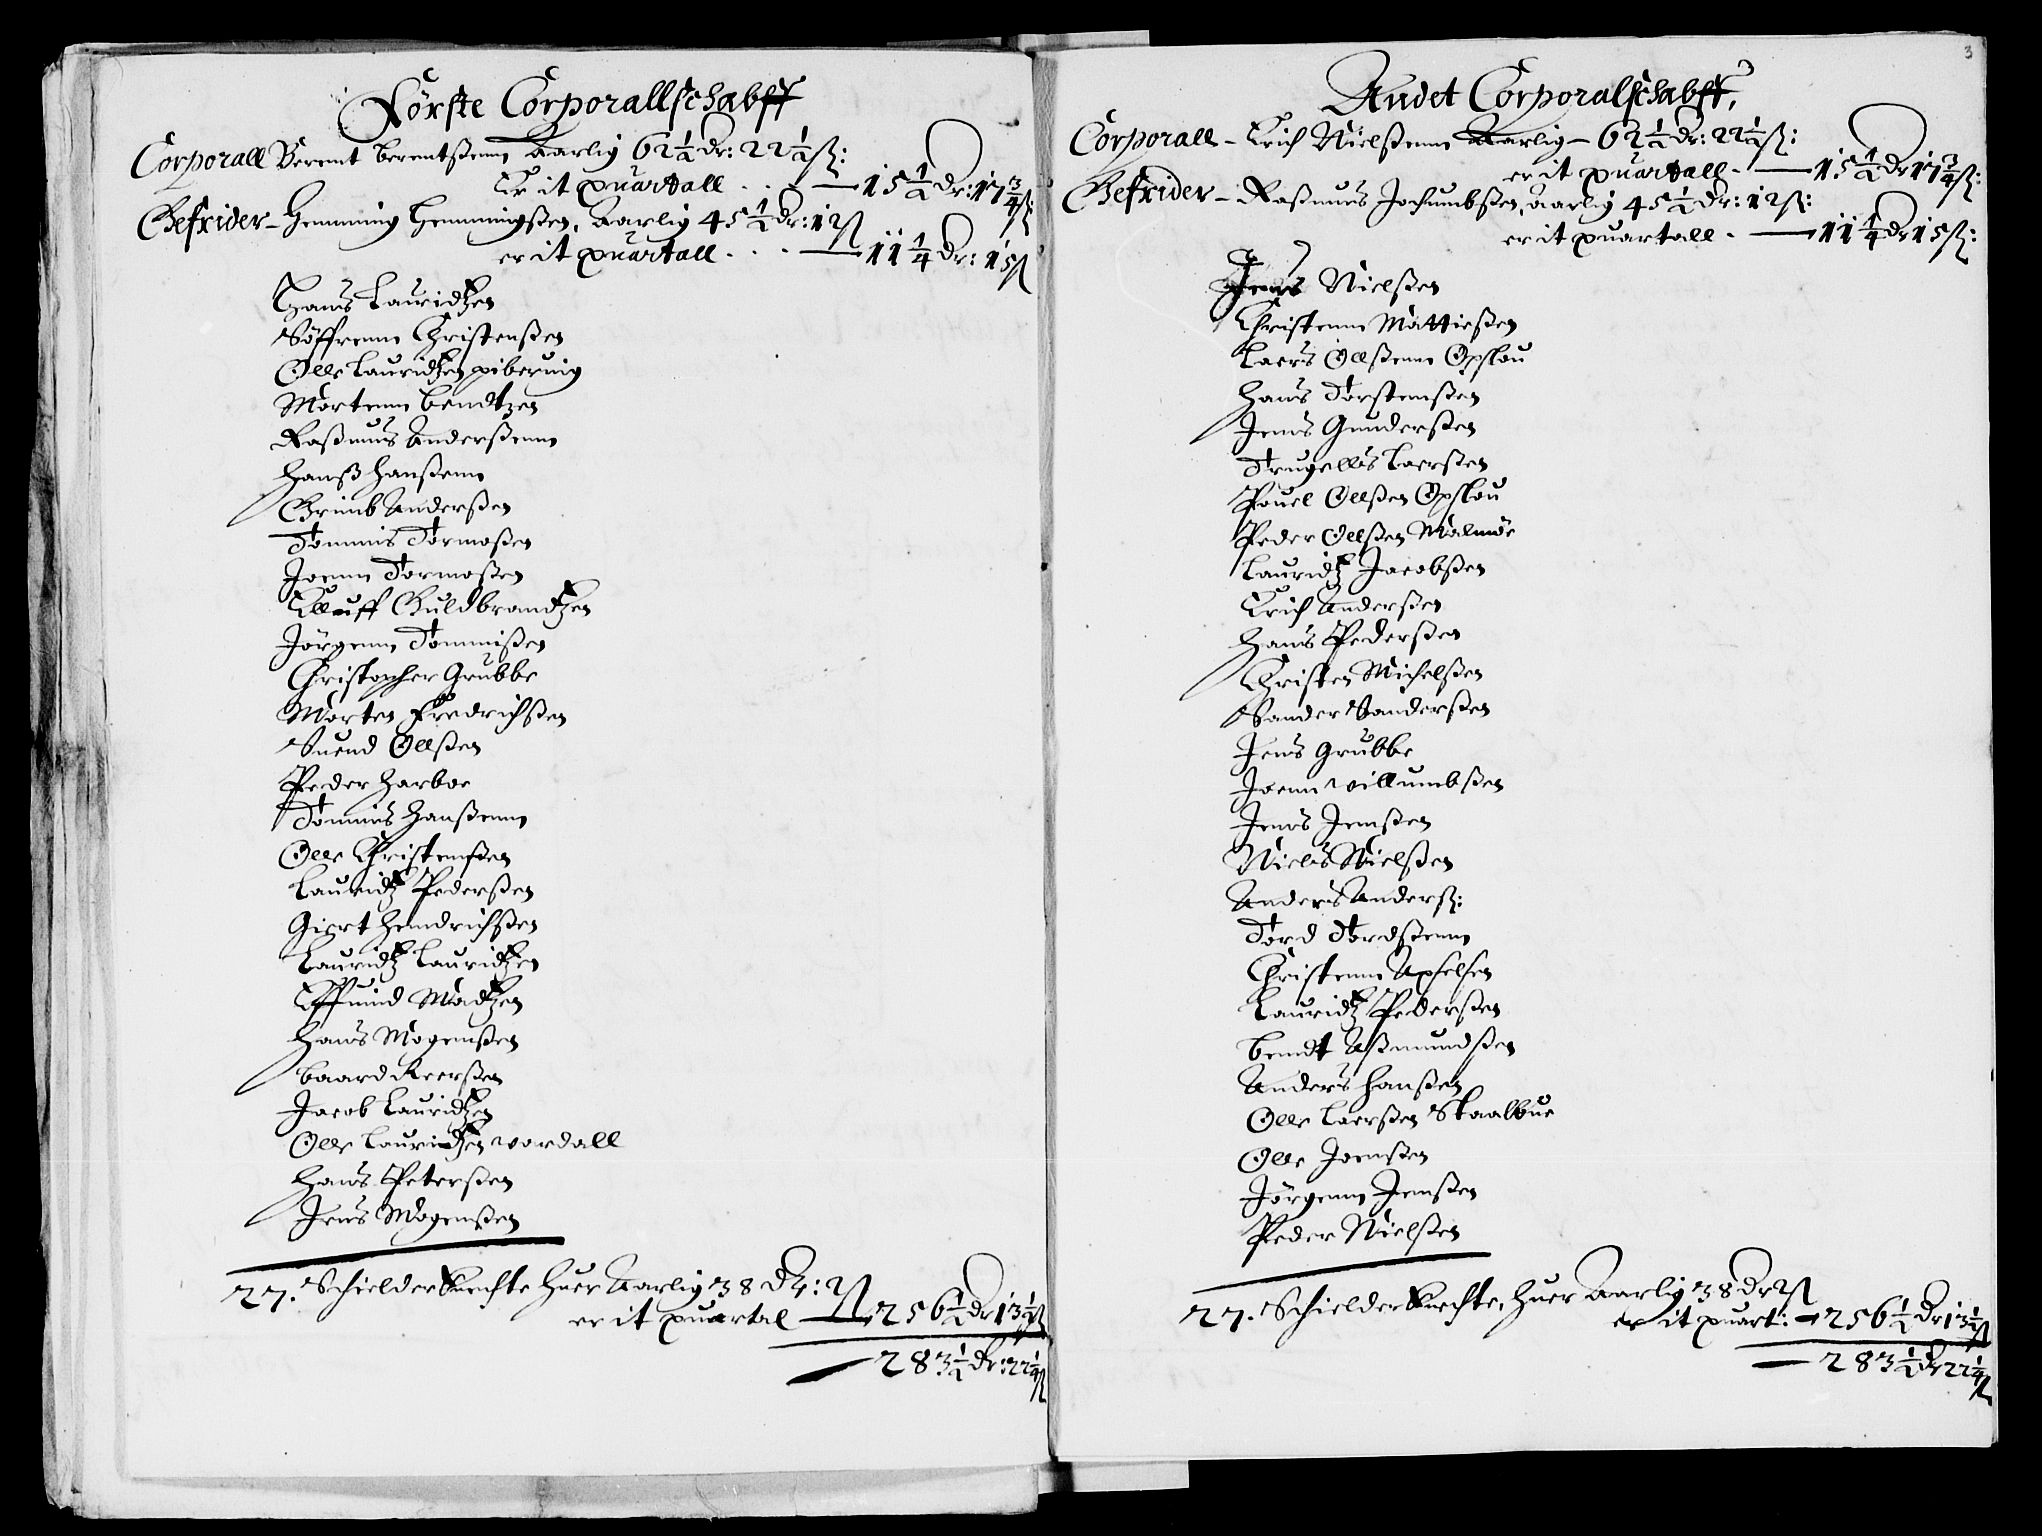 Förste Corporallschabfft
Corporall Berent berentßenn Aarlig 62½ dr: 22½ ß:
Er it quartall . . . — 15½ dr: 17¾ ß:
Gefrider – Hemming Hemmingßen, Aarlig 45½ dr: 12 ß
er it quartall . . . — 11¼ dr: 15 ß
Hans Lauridtzen
Söffrenn Christenßen
Olle Lauridtzen piberuig
Mortenn bendtzen
Raßmus Anderßenn
Hanß Hanßenn
Grimb Anderßen
Tommis Tormoßen
Joenn Tormoßen
Elluff Guldbrandtzen
Jörgenn Tommißen
Christopher Grubbe
Morten Fredrichßen
Suend Ollßen
Peder Harboe
Tommis Hanßenn
Olle Christenßen
Lauridtz Pederßen
Giert Hendrichßen
Lauridtz Lauridtzen
Effuind Madtzen
Hans Mogenßen
baard Reerßen
Jacob Lauridtzen
Olle Lauridtzen vardall
Hans Peterßen
Jens Mogenßen
27. Schielderknechte huer Aarlig 38 dr: 2 ß
er it quartal — 256½ dr 13½ ß
— 283½ dr: 22¼ ß
3
Andet Corporalschabfft,
Corporall – Erich Nielßenn Aarlig – 62½ dr: 22½ ß:
er it quartall – — 15½ dr 17¾ ß:
Gefrider – Raßmus Jochumbßen, Aarlig 45½ dr: 12 ß:
er it quartall – — 11¼ dr 15 ß:
Jens Nielßen
Christenn Mattießen
Laers Ollßenn Opslou
Hans Torstenßen
Jens Gunderßen
Trugells Laerßen
Pouel Ollßen Opslou
Peder Ollßen Malmöe
Lauridtz Jacobßen
Erich Anderßen
Hans Pederßen
Christen Michelßen
Sander Sanderßen
Jens Grubbe
Joenn Villumbßen
Jens Jenßen
Niels Nielßen
Anders Anderß:
Tord Tordßenn
Christenn Apselsen
Lauridtz Pederßen
bendt Aßmundßen
Anders Hanßen
Olle Laerßen Skaalbue
Olle Joenßen
Jörgenn Jenßen
Peder Nielßen
27. Schielderknechte, huer Aarlig 38 dr 2 ß
er it quart: – 256½ dr 13½ ß
— 283½ dr 22¼ ß